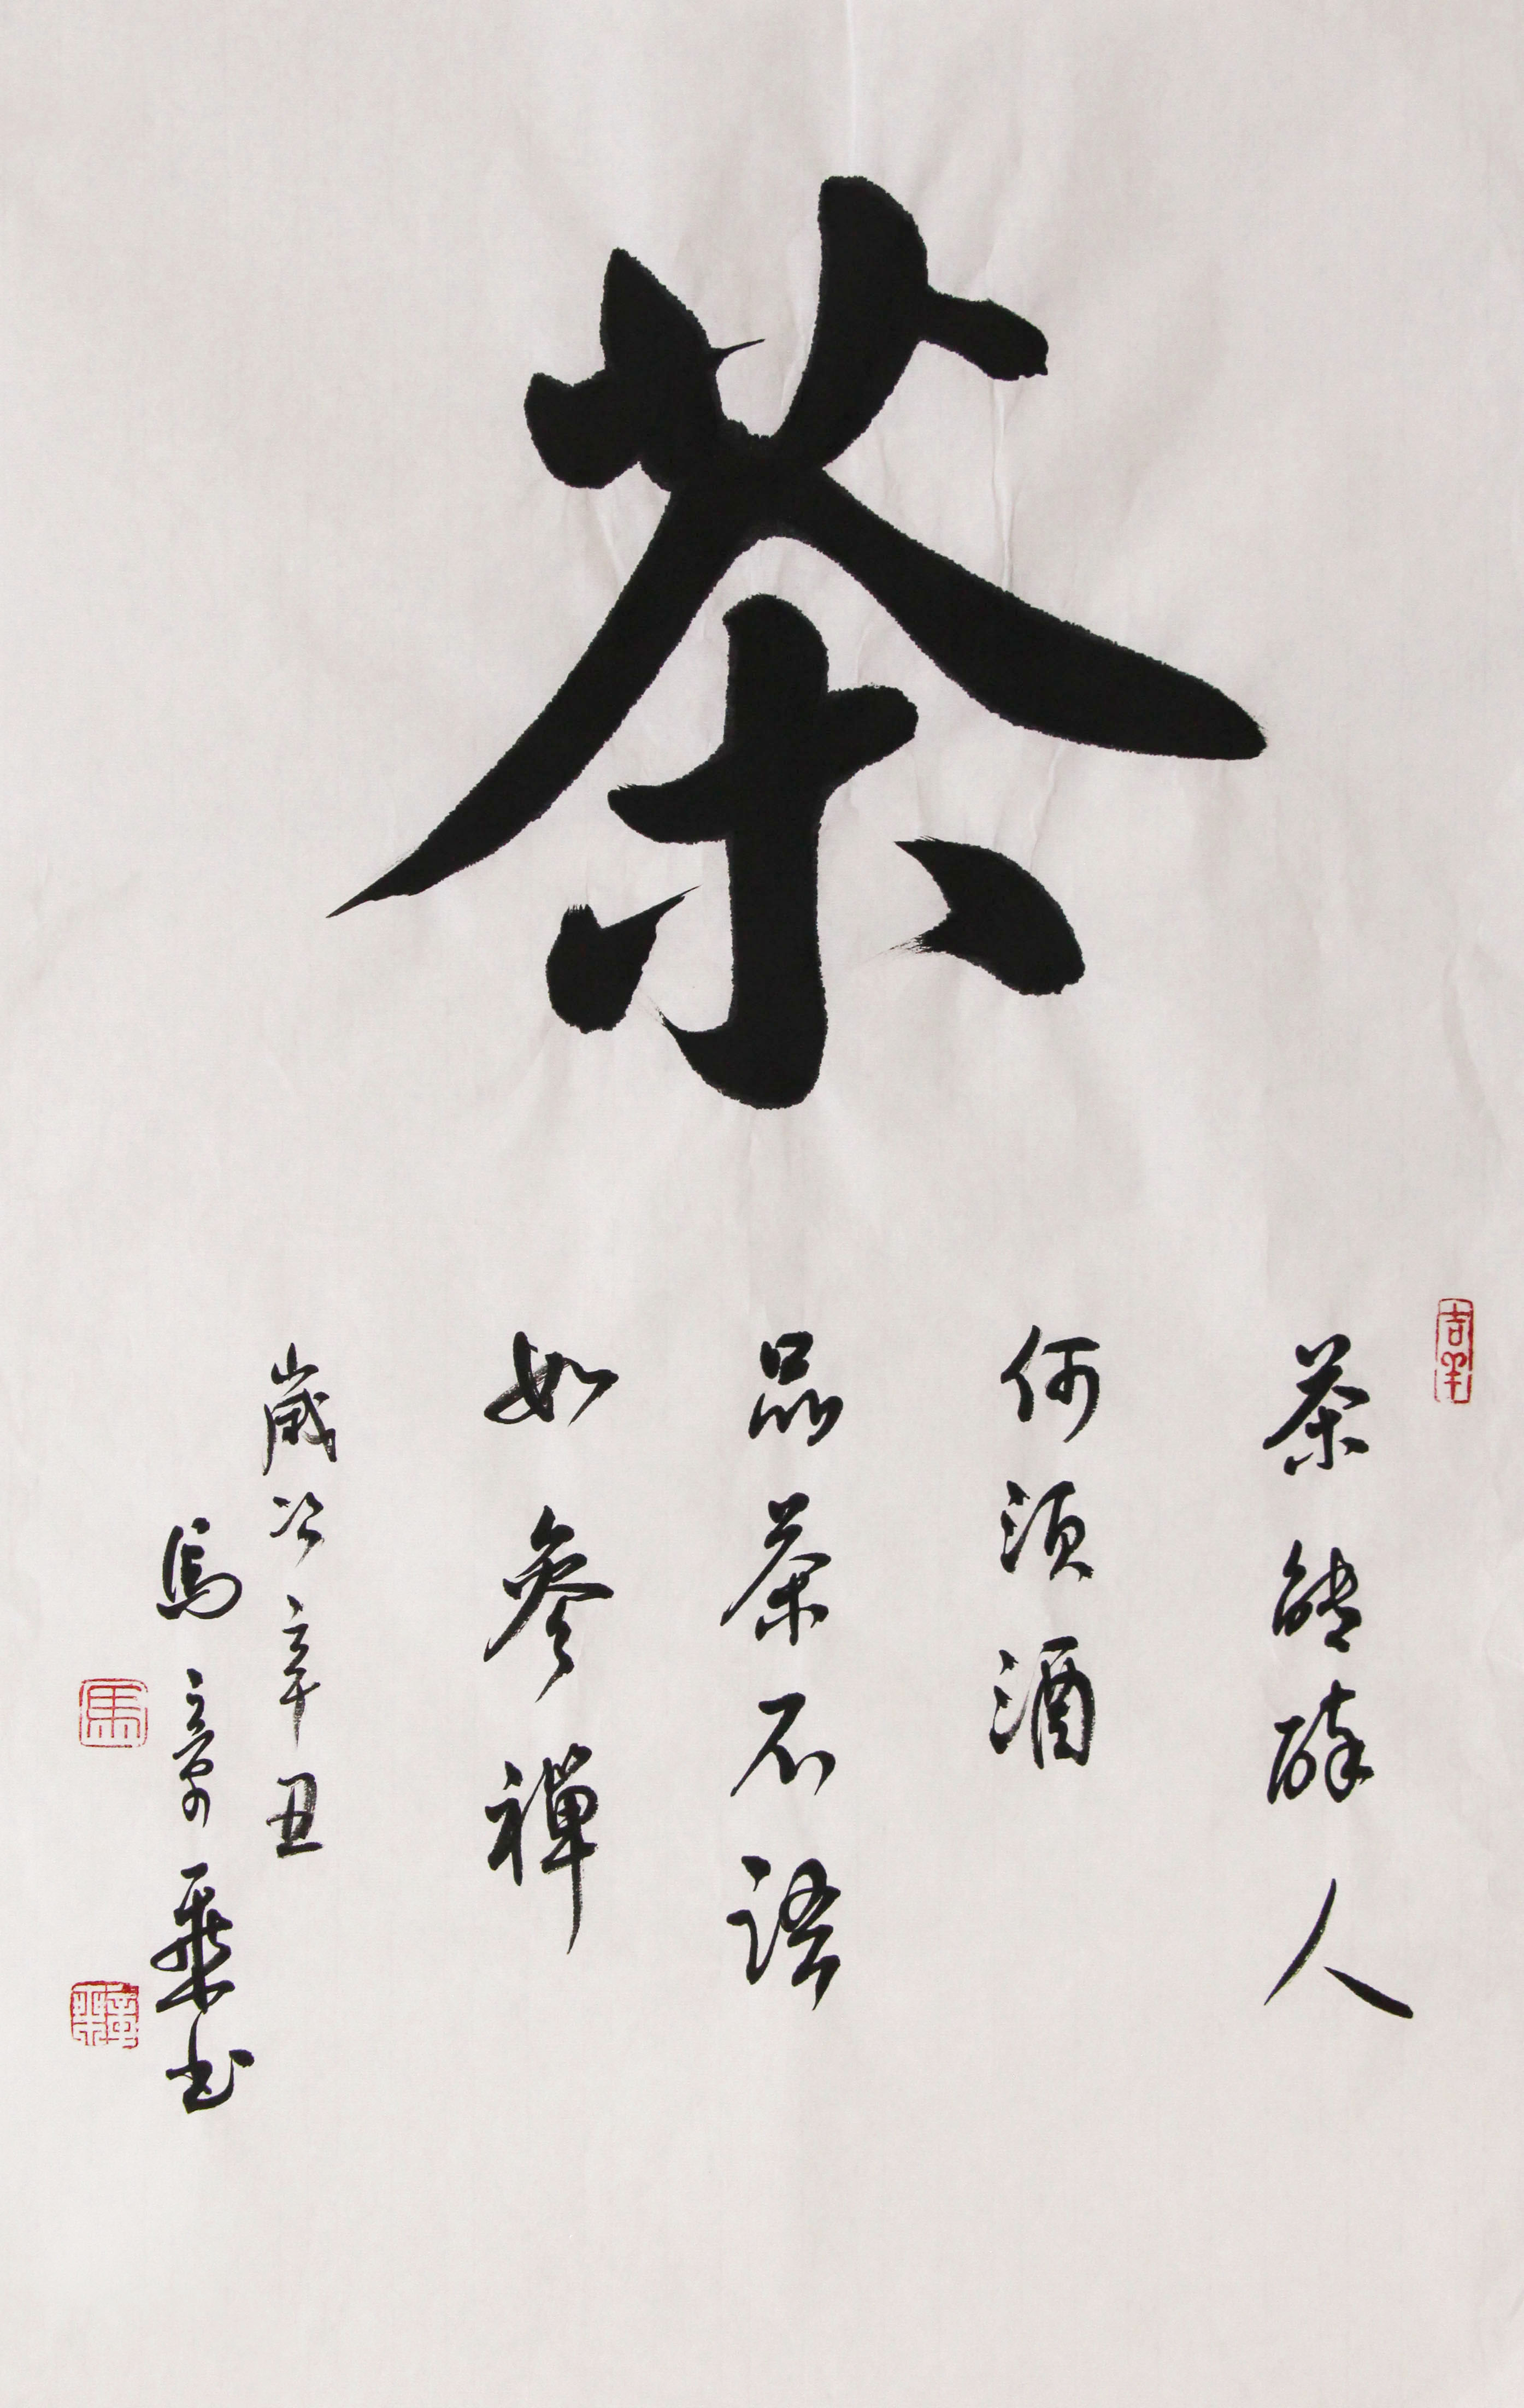 茶
茶能醉人
何須酒
品茶不語
如參禪
歲次辛丑
馬章乘书
吉羊
馬
章乘